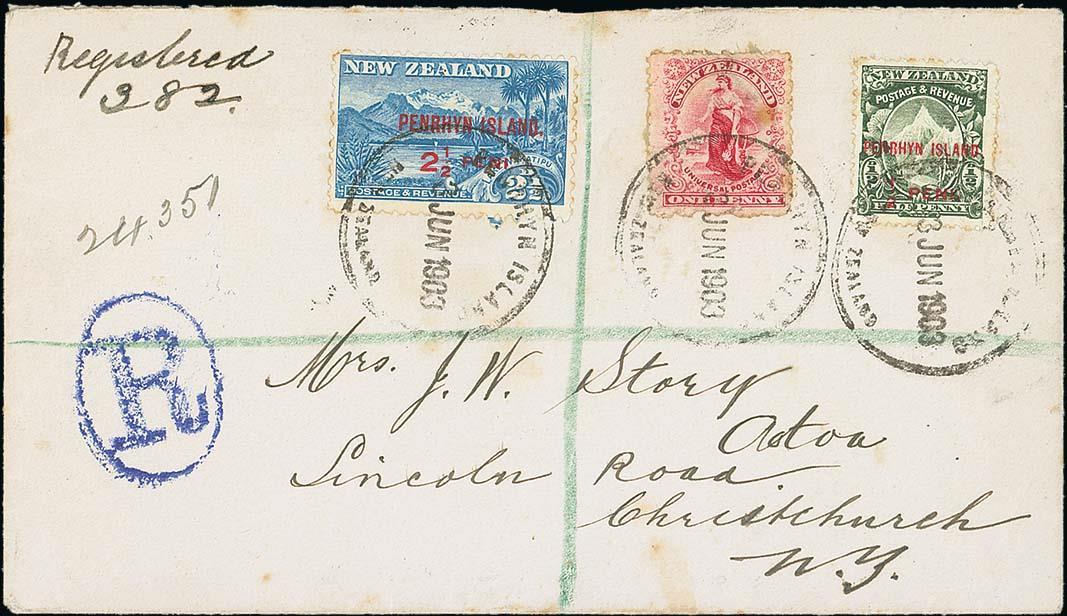 Registered
382.
24.351
R
NEW ZEALAND
PENRHYN ISLAND.
2½ PENI
POSTAGE & REVENUE.
2½
NEW ZEALAND
UNIVERSAL POSTAGE
ONE PENNY
NEW ZEALAND
POSTAGE & REVENUE
PENRHYN ISLAND.
½ PENI
½ ½
HALF PENNY
JUN 1903
ZEALAND
JUN 1903
3 JUN 1903
ZEALAND
Mrs. J. W. Story
Lincoln Road
Christchurch
N.Z.